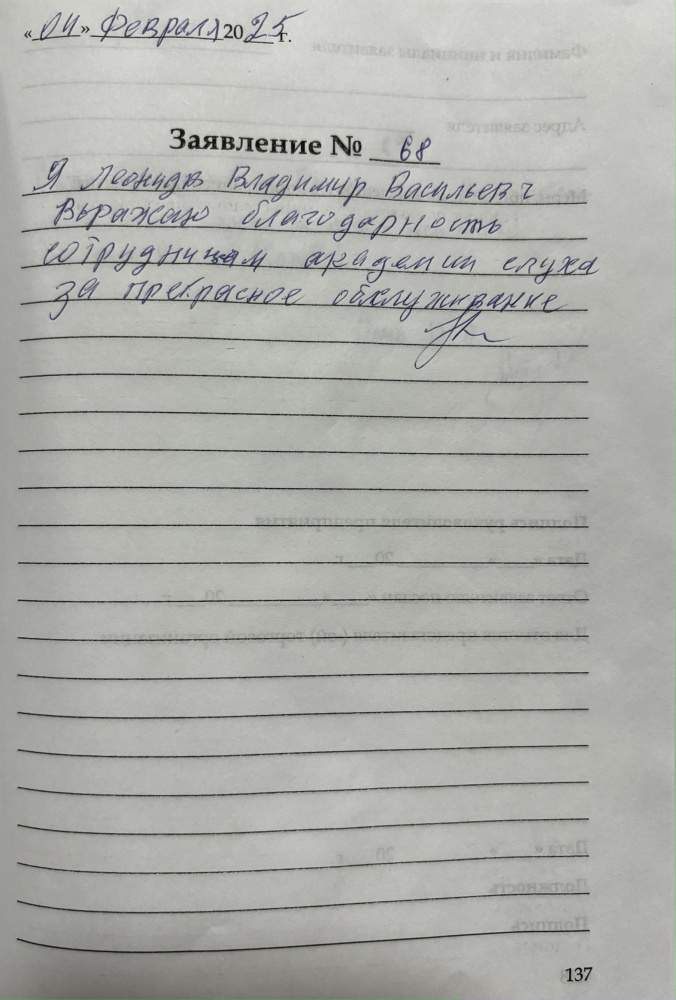 «04» Февраля 2025 г.
Заявление № 68
Я Леонидов Владимир Васильевч
Выражаю благодарность
сотрудницам академии слуха
за прекрасное обслуживание
137